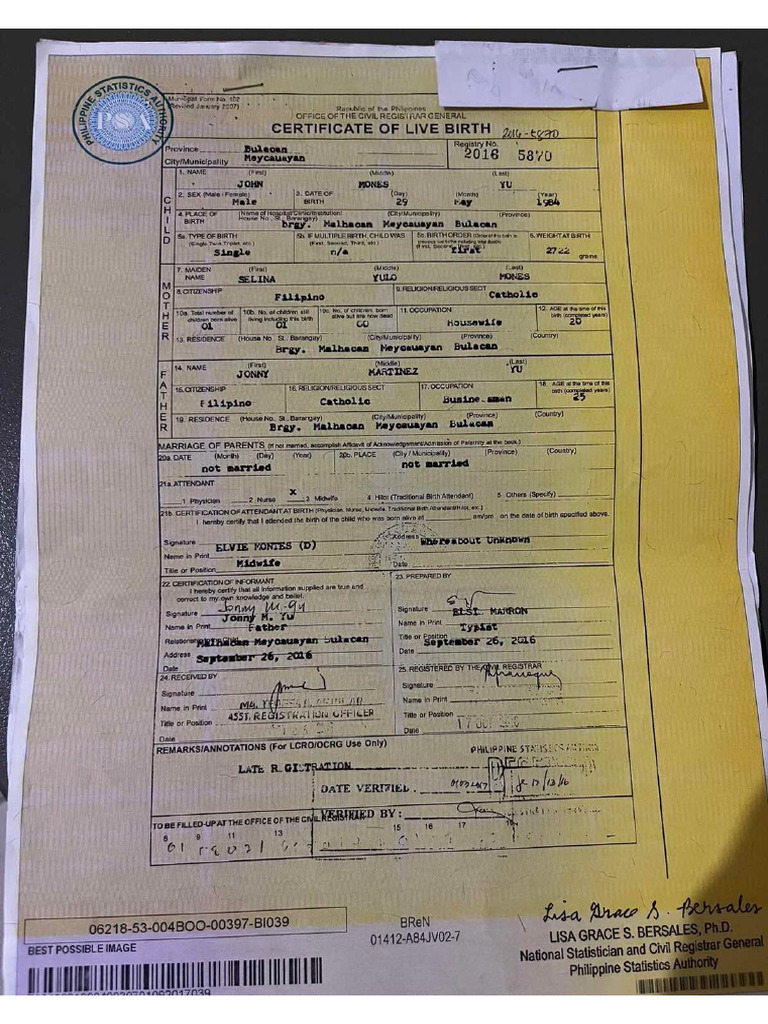 PHILIPPINE STATISTICS AUTHORITY
PSA
Municipal Form No. 102
(Revised January 2007)
Republic of the Philippines
OFFICE OF THE CIVIL REGISTRAR GENERAL
CERTIFICATE OF LIVE BIRTH
2016-5870
Province Bulacan
City/Municipality Meycauayan
Registry No.
2016 5870
CHILD
1. NAME (First) (Middle) (Last)
JOHN MONES YU
2. SEX (Male / Female) 3. DATE OF BIRTH (Day) (Month) (Year)
Male 29 May 1984
4. PLACE OF BIRTH Name of Hospital/Clinic/Institution/ House No., St. Barangay) (City/Municipality) (Province)
Brgy. Malhacan Meycauayan Bulacan
5a. TYPE OF BIRTH (Single, Twin, Triplet, etc.) 5b. IF MULTIPLE BIRTH, CHILD WAS (First, Second, Third, etc.) 5c. BIRTH ORDER 6. WEIGHT AT BIRTH
Single n/a first 2722 grams
MOTHER
7. MAIDEN NAME (First) (Middle) (Last)
SELINA YULO MONES
8. CITIZENSHIP 9. RELIGION/RELIGIOUS SECT
Filipino Catholic
10a. Total number of children born alive 10b. No. of children still living including this birth 10c. No. of children born alive but are now dead 11. OCCUPATION 12. AGE at the time of this birth (completed years)
01 01 00 Housewife 20
13. RESIDENCE (House No., St., Barangay) (City/Municipality) (Province) (Country)
Brgy. Malhacan Meycauayan Bulacan
FATHER
14. NAME (First) (Middle) (Last)
JONNY MARTINEZ YU
15. CITIZENSHIP 16. RELIGION/RELIGIOUS SECT 17. OCCUPATION 18. AGE at the time of this birth (completed years)
Filipino Catholic Businessman 25
19. RESIDENCE (House No., St., Barangay) (City/Municipality) (Province) (Country)
Brgy. Malhacan Meycauayan Bulacan
MARRIAGE OF PARENTS (If not married, accomplish Affidavit of Acknowledgement/Admission of Paternity at the back.)
20a. DATE (Month) (Day) (Year) 20b. PLACE (City / Municipality) (Province) (Country)
not married not married
21a. ATTENDANT
1 Physician 2 Nurse x 3 Midwife 4 Hilot (Traditional Birth Attendant) 5 Others (Specify)
21b. CERTIFICATION OF ATTENDANT AT BIRTH (Physician, Nurse, Midwife, Traditional Birth Attendant/Hilot, etc.)
I hereby certify that I attended the birth of the child who was born alive at am/pm on the date of birth specified above.
Signature Address Whereabout Unknown
Name in Print ELVIE MONTES (D)
Title or Position Midwife Date
22. CERTIFICATION OF INFORMANT
I hereby certify that all information supplied are true and correct to my own knowledge and belief.
Signature
Name in Print Jonny M. Yu
Relationship to the Child Father
Address Malhacan Meycauayan Bulacan
Date September 26, 2016
23. PREPARED BY
Signature
Name in Print MARRON
Title or Position Typist
Date September 26, 2016
24. RECEIVED BY
Signature
Name in Print
Title or Position ASST. REGISTRATION OFFICER
Date
25. REGISTERED BY THE CIVIL REGISTRAR
Signature
Name in Print
Title or Position
Date
REMARKS/ANNOTATIONS (For LCRO/OCRG Use Only)
LATE R. GISTRATION
DATE VERIFIED
VERIFIED BY:
TO BE FILLED-UP AT THE OFFICE OF THE CIVIL REGISTRAR
8 9 11 13 15 16 17
06218-53-004BOO-00397-BI039
BEST POSSIBLE IMAGE
BReN
01412-A84JV02-7
Lisa Grace S. Bersales
LISA GRACE S. BERSALES, Ph.D.
National Statistician and Civil Registrar General
Philippine Statistics Authority